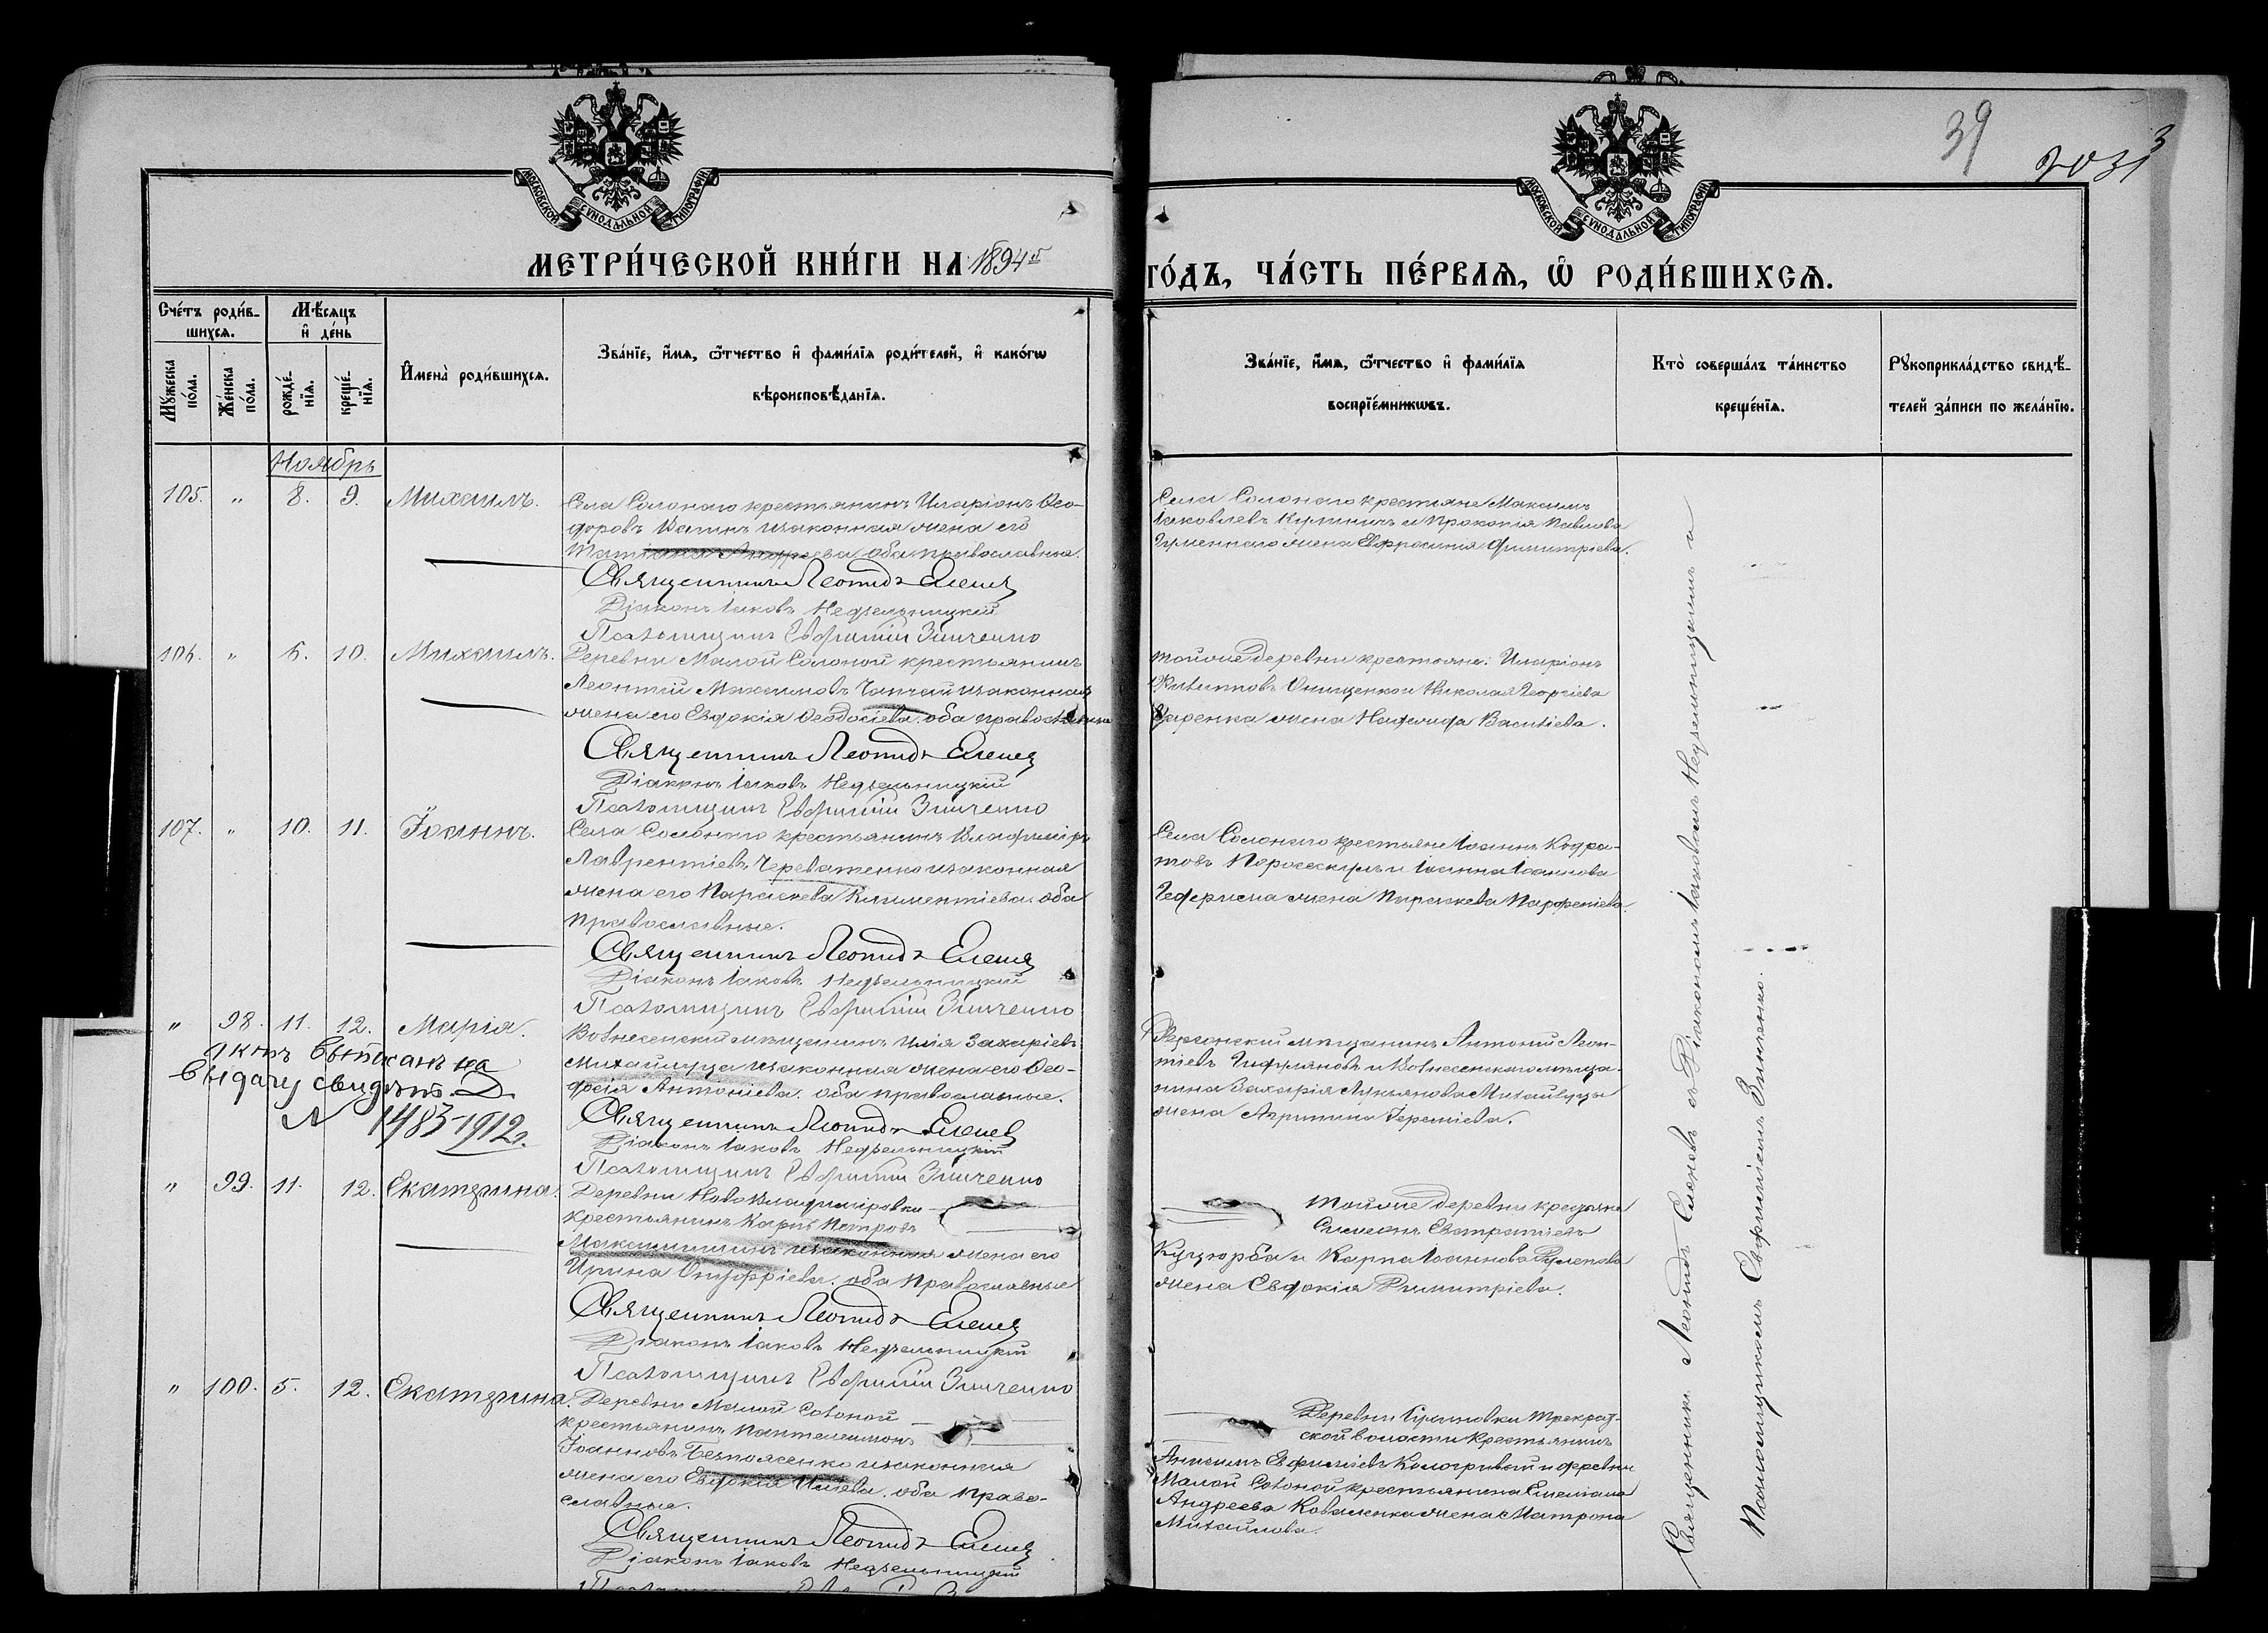 39
2031
3
МОСКОВСКОЙ СѴНОДАЛЬНОЙ ТИПОГРАФІИ
МОСКОВСКОЙ СѴНОДАЛЬНОЙ ТИПОГРАФІИ
МЕТРИ́ЧЕСКОЙ КНИ́ГИ НА 1894й
ГО́ДЪ, ЧА́СТЬ ПЕ́РВАѦ, Ѡ҆ РОДИ́ВШИХСѦ.
Сче́тъ роди́в-
шихсѧ.
Мꙋ́жеска по́ла.
Же́нска по́ла.
Мѣ́сѧцъ
и҆ де́нь
рожде́-нїѧ.
креще́-нїѧ.
И҆мена̀ роди́вшихсѧ.
Зва́нїе, и҆́мѧ, ѻ҆́тчество и҆ фами́лїѧ роди́телей, и҆ како́гѡ
вѣроисповѣ́данїѧ.
Зва́нїе, и҆́мѧ, ѻ҆́тчество и҆ фами́лїѧ
воспрїе́мникѡвъ.
Кто̀ соверша́лъ та́инство
креще́нїѧ.
Рꙋкоприкла́дство свидѣ́-
телей за́писи по жела́нїю.
Ноябрь
105. " 8. 9. Михаилъ.
Села Солонаго крестьянинъ Иларіонъ Ѳео-
доровъ Валинъ и законная жена его
Татіана Андреева. оба православные.
Священникъ Леонидъ Еленевъ
Діаконъ Іаковъ Недзельницкій
Псаломщикъ Евфимій Зинченко
Села Солонаго крестьяне Максимъ
Іаковлевъ Кулиничъ и Прокопія Павлова
жена Евфросинія Димитріева.
106. " 6. 10. Михаилъ.
Деревни Малой Солоной крестьянинъ
Леонтій Максимовъ Чапчай и законная
жена его Евдокія Ѳеодосіева. оба православные
Священникъ Леонидъ Еленевъ
Діаконъ Іаковъ Недзельницкій
Псаломщикъ Евфимій Зинченко
Той же деревни крестьяне: Иларіонъ
Филипповъ Онищенко и Николая Георгіева
жена Надежда Васильева.
107. " 10. 11. Іоаннъ.
Села Солонаго крестьянинъ Владиміръ
Лаврентіевъ Череватенко и законная
жена его Параскева Климентіева. оба
православные.
Священникъ Леонидъ Еленевъ
Діаконъ Іаковъ Недзельницкій
Псаломщикъ Евфимій Зинченко
Села Солонаго крестьяне Іоаннъ Кодра-
товъ и Іоанна Іоаннова
жена Параскева Парфеніева.
" 98. 11. 12. Марія.
Актъ выписанъ на
выдачу свидѣт. Д.
N 1483-1912г.
Вознесенскій мѣщанинъ Илія Захаріевъ
Михайлуца и законная жена его Ѳео-
досія Антоніева. оба православные.
Священникъ Леонидъ Еленевъ
Діаконъ Іаковъ Недзельницкій
Псаломщикъ Евфимій Зинченко
Херсонскій мѣщанинъ Антоній Леон-
тіевъ и Вознесенскаго мѣща-
нина Захарія Лукьянова Михайлуцы
жена Агрипина Іереміева.
" 99. 11. 12. Екатерина.
Деревни Ново Владиміровки
крестьянинъ Карпъ Петровъ
и законная жена его
Ирина Онуфріева. оба Православные
Священникъ Леонидъ Еленевъ
Діаконъ Іаковъ Недзельницкій
Псаломщикъ Евфимій Зинченко
Той же деревни крестьяне
Симеонъ Евстратіевъ
Куцюрба и Карпа Іоаннова
жена Евдокія Димитріева.
" 100. 5. 12. Екатерина.
Деревни Малой Солоной
крестьянинъ Пантелеимонъ
Іоанновъ Безпоясенко и законная
жена его Евдокія Иліева. оба право-
славные.
Священникъ Леонидъ Еленевъ
Діаконъ Іаковъ Недзельницкій
Деревни
волости крестьянинъ
Анисимъ Евфиміевъ Кологривый и деревни
Малой Солоной крестьянина Емеліана
Андреева Коваленка жена Матрона
Михайлова.
Священникъ Леонидъ Еленевъ съ Діакономъ Іаковомъ Недзельницкимъ и
Псаломщикомъ Евфиміемъ Зинченко.